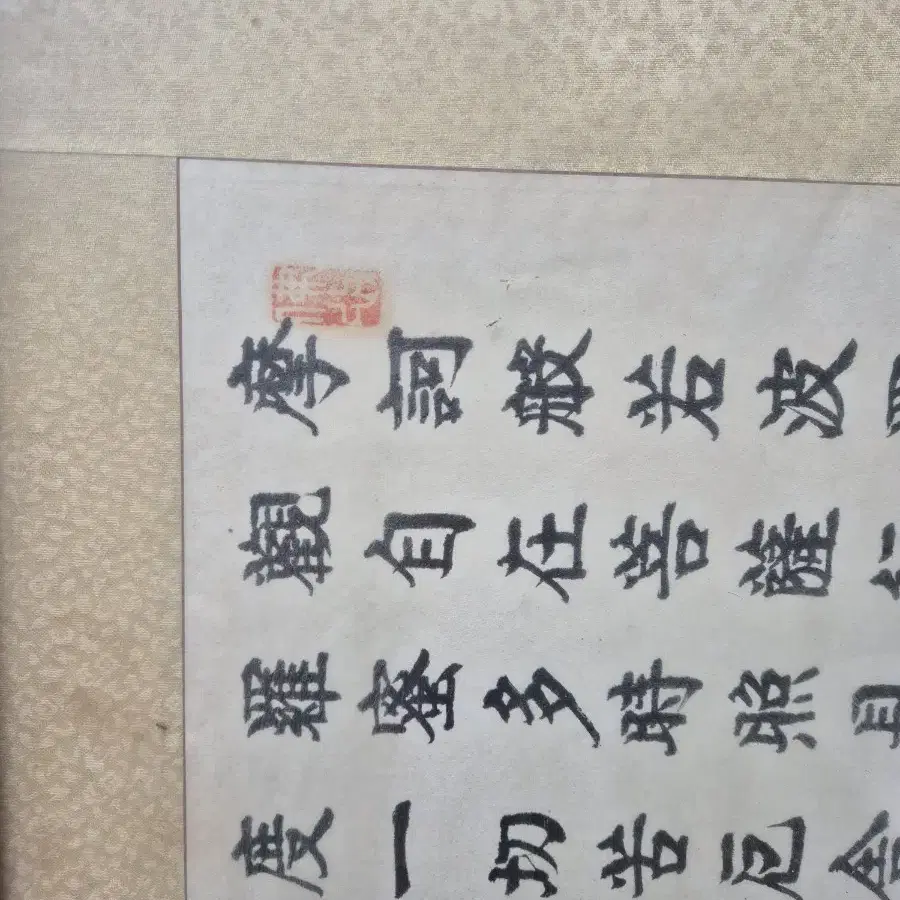 摩訶般若波
觀自在菩薩
羅蜜多時照見
度一切苦厄舍